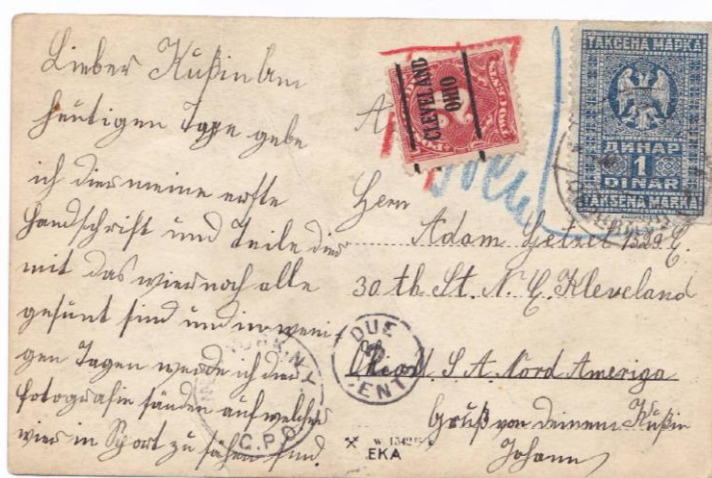 Lieber Kußin Am
heutigen Tage gebe
ich dier meine erste
Handschrift und Teile dier
mit das wier noch alle
gesünt sind und in weni-
gen Tagen werde ich dier
fotografie sänden auf welcher
wier in Sport zu sähen sind.
CLEVELAND
OHIO
ТАКСЕНА МАРКА
ДИНАР
1
DINAR
TAKSENA MARKA
Herr
Adam Getzel 1329 E.
30 th. St. N. E. Kleveland
U S A Nord Ameriga
DUE
CENTS
N.Y.
G.P.O.
Gruß von deinem Kußin
Johann
EKA